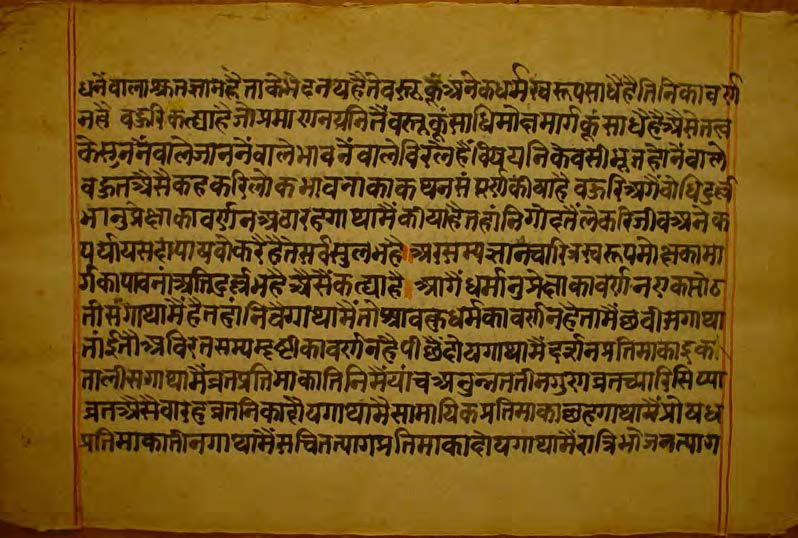 धनेंवाला श्रुतज्ञानहै ताके भेद नयहै ते वस्तुकूं अनेकधर्मस्वरूप साधैहै तिनिका वर्ण
नहै बहुरि कह्याहै जो प्रमाणनयनितैं वस्तुकूं साधि मोक्षमार्गकूं साधैहै ऐसे तत्व
के सुननेंवाले जाननेंवाले भावनेंवाले विरलेहैं विषयनिके वसीभूत होनेंवाले
बहुत ऐसै कहकरि लोकभावनाका कथन संपूर्ण कीयाहै बहुरि आगैं बोधिदुर्ल्ल
भानुप्रेक्षाका वर्णन अठारह गाथामैं कीयाहै तहां निगोदतैं लेकरि जीव अनेक
पर्य्याय सदा पायवो करैहै ते सर्व सुलभहै । अर सम्यग्ज्ञानचारित्रस्वरूप मोक्षका मा
र्गका पावनां अति दुर्ल्लभहै ऐसैं कह्याहै । आगैं धर्मानुप्रेक्षाका वर्णन एकसोछ
तीस गाथामैंहै तहां निवै गाथामैं तो श्रावकधर्मका वर्णनहै तामैं छवीस गाथा
तांई तौ अविरतसम्यग्दृष्टीका वर्णनहै पीछै दोय गाथामैं दर्शनप्रतिमाका इक
तालीस गाथामैं व्रतप्रतिमाका तिनिमैं पांच अनुव्रत तीन गुणव्रत च्यारि सिष्या
व्रत ऐसै बारह व्रतनिका दोय गाथामैं सामायिकप्रतिमाका छह गाथामैं प्रोषध
प्रतिमाका तीन गाथामैं सचितत्यागप्रतिमाका दोय गाथामैं रात्रिभोजनत्याग